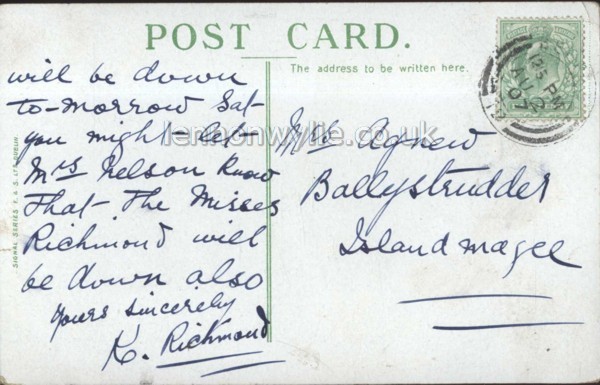 POST CARD.
The address to be written here.
will be down
to-morrow Sat-
you might let
Mrs Nelson Know
That The Misses
Richmond will
be down also
Yours Sincerely
K. Richmond
Agnew
Ballystrudder
Islandmagee
SIGNAL SERIES E. & S. LTD DUBLIN.
lennonwylie.co.uk
PM
AU 2
07